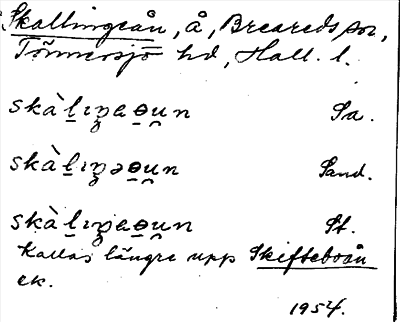 Skallingeån, å, Breareds sn,
Tönnersjö hd, Hall. l.
skàl̠ıŋɐɵ̠u̯n Sa.
skàl̠ıŋəɵ̠u̯n Sand.
skàl̠ıŋɐɵ̠u̯n St.
Kallas längre upp Skifteboån
ek.
1954.